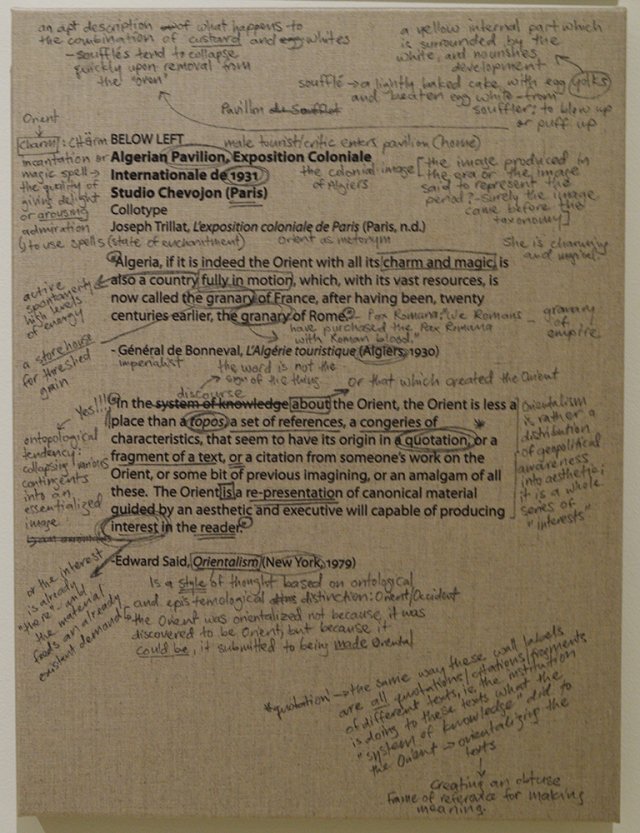 an apt description of what happens to
the combination of custard and egg whites
- soufflés tend to collapse
quickly upon removal from
the "oven"
a yellow internal part which
is surrounded by the
white, and nourishes
development
soufflé → a lightly baked cake with egg yolks
and beaten egg white - from
souffler: to blow up
or puff up
Pavillon de Soufflot
Orient
↓
charm: CHärm
incantation or
magic spell →
the quality of
giving delight
or arousing
admiration
→ to use spells (state of enchantment)
male tourist/critic enters pavilion (home)
BELOW LEFT
Algerian Pavilion, Exposition Coloniale
Internationale de 1931
Studio Chevojon (Paris)
Collotype
Joseph Trillat, L'exposition coloniale de Paris (Paris, n.d.)
the colonial image
of Algiers
[the image produced in
the era or the image
said to represent the
period? - surely the image
came before the
taxonomy]
Orient as metonym
She is charming
and magical
"Algeria, if it is indeed the Orient with all its charm and magic, is
also a country fully in motion, which, with its vast resources, is
now called the granary of France, after having been, twenty
centuries earlier, the granary of Rome."
active
spontaneity
high levels
of energy
- Pax Romana: "We Romans
have purchased the Pax Romana
with Roman blood."
- granary
of
empire
a storehouse
for threshed
grain
- Général de Bonneval, L'Algérie touristique (Algiers, 1930)
imperialist
the word is not the
sign of the thing
discourse
or that which created the Orient
Yes!!!
"In the system of knowledge about the Orient, the Orient is less a
place than a topos, a set of references, a congeries of
characteristics, that seem to have its origin in a quotation, or a
fragment of a text, or a citation from someone's work on the
Orient, or some bit of previous imagining, or an amalgam of all
these. The Orient is a re-presentation of canonical material
guided by an aesthetic and executive will capable of producing
interest in the reader."
ontopological
tendency:
collapsing various
contingents
into an
essentialized
image
Orientalism
is rather a
distribution
of geopolitical
awareness
into aesthetic;
it is a whole
series of
"interests"
-Edward Said, Orientalism (New York, 1979)
or the interest
is already
"there" - and
the material
feeds an already
existent demand
Is a style of thought based on ontological
and epistemological distinction: Orient/Occident
the Orient was orientalized not because, it was
discovered to be Orient, but because it
could be, it submitted to being made Oriental
*'quotation' → the same way these wall labels
are all quotations/citations/fragments
of different texts, i.e. the institution
is doing to these texts what the
"system of knowledge" did to
the Orient → orientalizing the
texts
↓
Creating an obtuse
frame of reference for making
meaning.